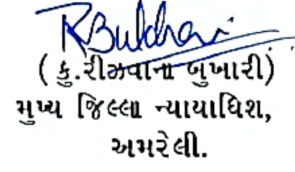 RBukhari
( કુ.રીઝવાના બુખારી)
મુખ્ય જિલ્લા ન્યાયાધિશ,
અમરેલી.